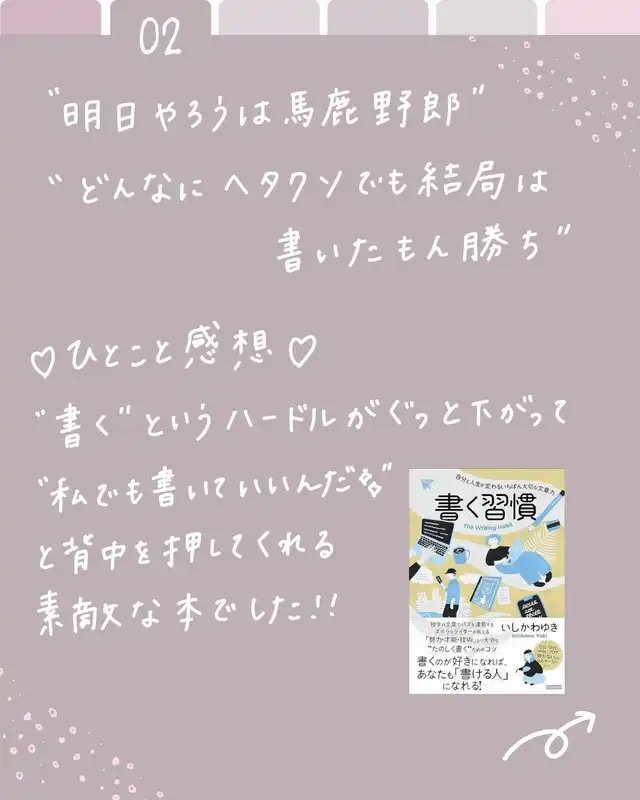 02
"明日やろうは馬鹿野郎"
"どんなにヘタクソでも結局は
書いたもん勝ち"
♡ひとこと感想♡
"書く"というハードルがぐっと下がって
"私でも書いていいんだ"
と背中を押してくれる
素敵な本でした!!
自分と人生が変わるいちばん大切な文章力
書く習慣
The Writing Habit
独学の文章でバズを連発する
ズボラなライターが教える
「努力・才能・技術」より大切な
"たのしく書く"ためのコツ
いしかわゆき
Ishikawa Yuki
書くのが好きになれば、
あなたも「書ける人」
になれる!